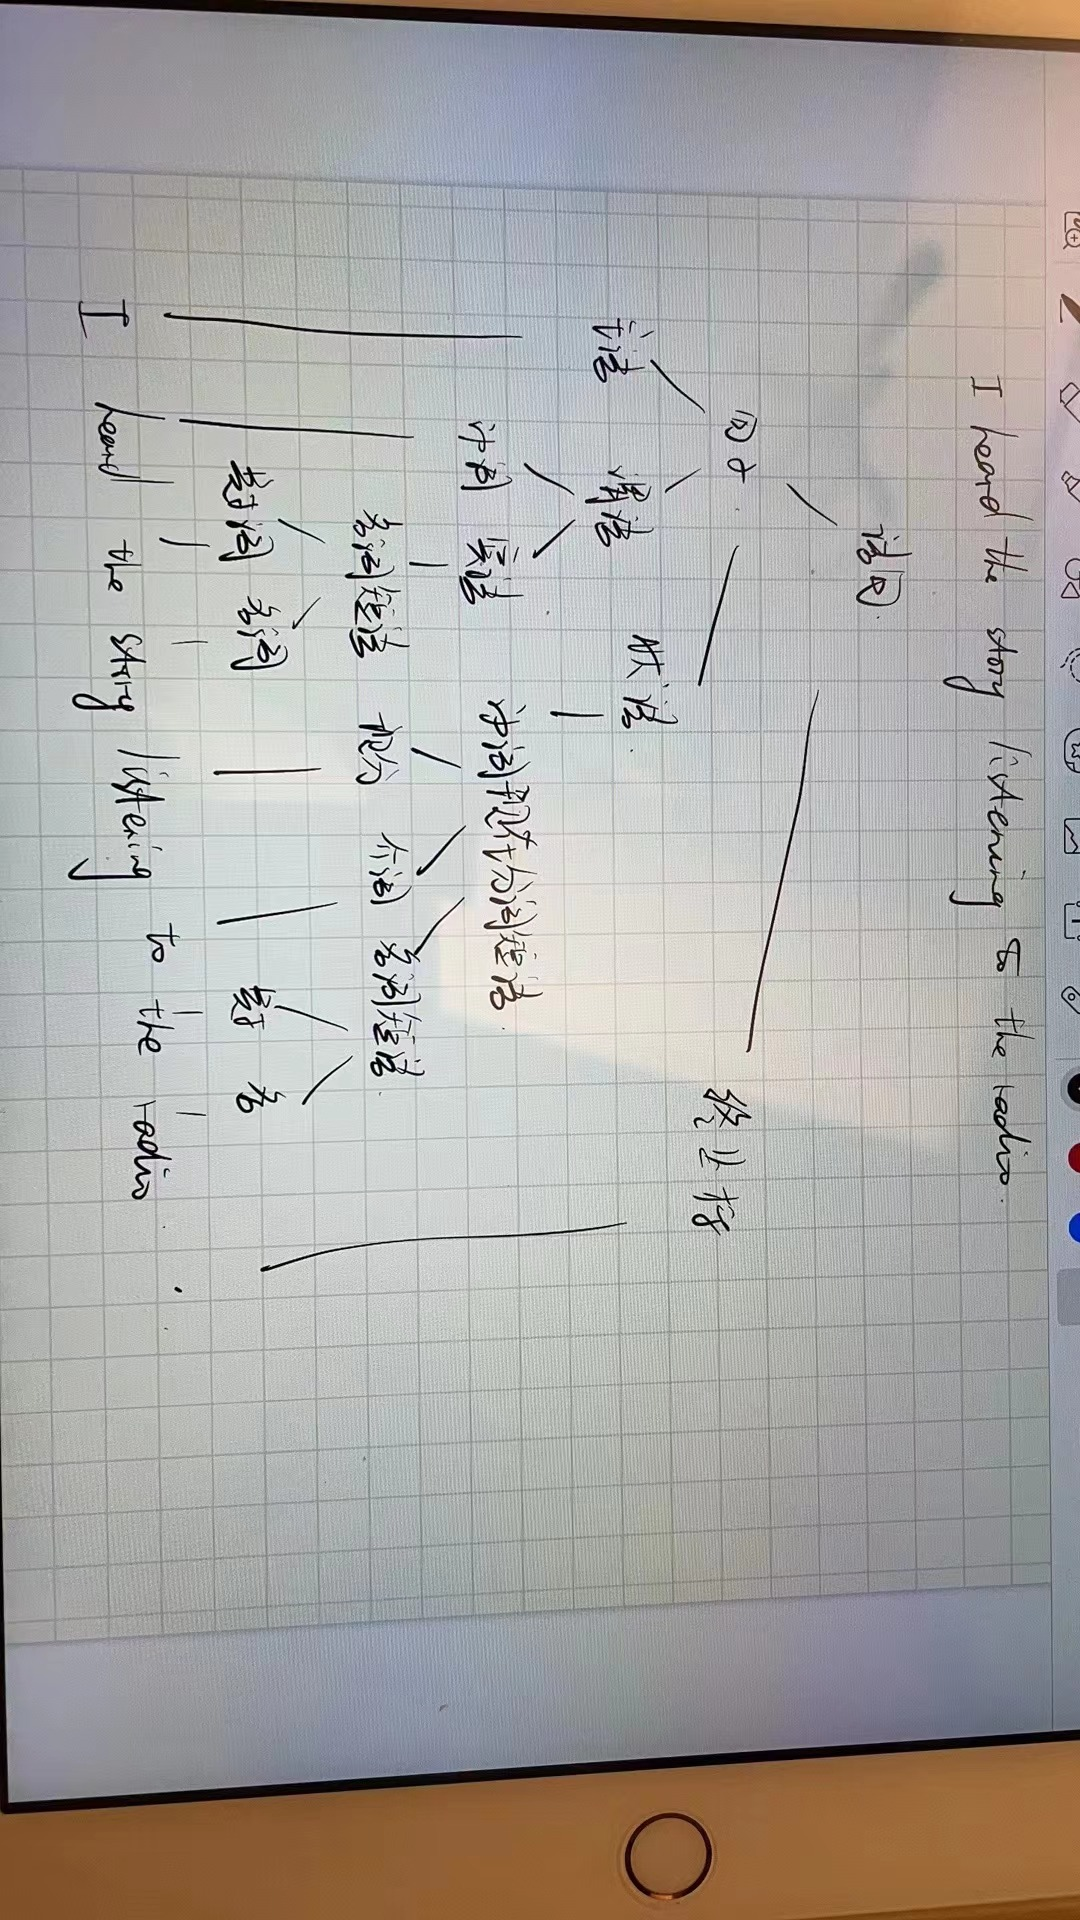 I heard the story listening to the radio.
语句
句子
终止符
主语 谓语 状语
动词 宾语 动词现在分词短语
名词短语 现分 介词 名词短语
冠词 名词 冠 名
I heard the story listening to the radio .